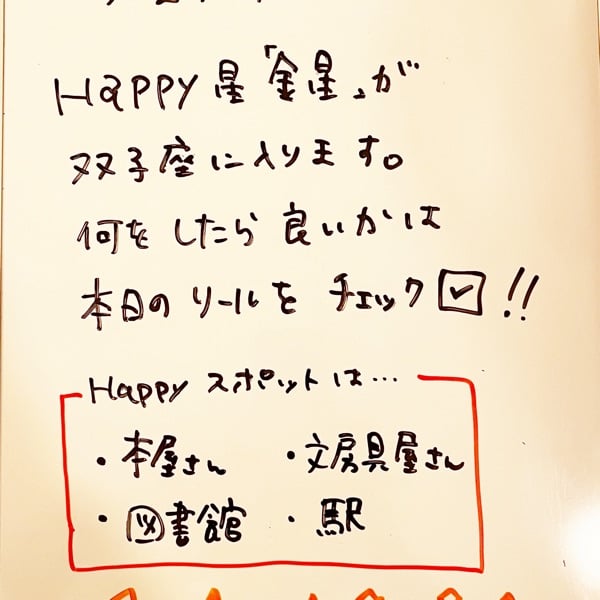 Happy星「金星」が
双子座に入ります。
何をしたら良いかは
本日のリールをチェック☑!!
Happyスポットは…
・本屋さん ・文房具屋さん
・図書館 ・駅